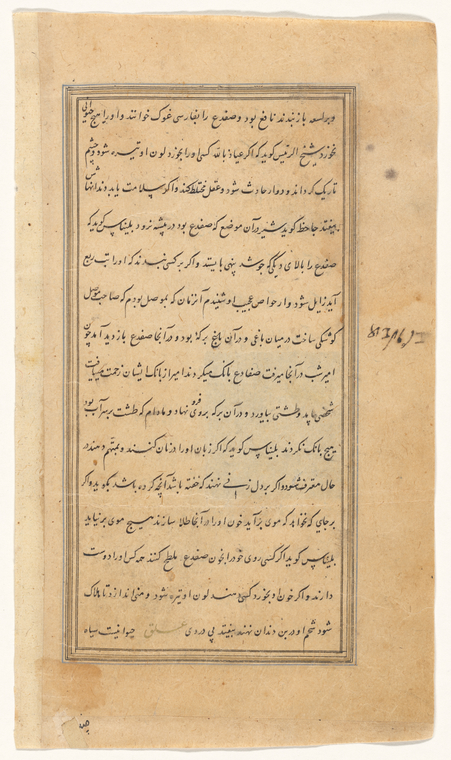 وبر لسعه باز بندند نافع بود وضفدع را بفارسی غوک خوانند و اورا هیچ حیوانی
نخورد شیخ الرئیس کوید که اکر عیاذ بالله کسی اورا بخورد لون او تیره شود و چشم
تاریک کرداند و دوار حادث شود و عقل مختلط کند و اکر سلامت یابد دندانهاش
بیفتد جاحظ کوید شیر در آن موضع که ضفدع بود در بیشه نرود بلیناس کوید که
ضفدع را بالای دیکی که جوشد بنهی بایستد و اکر بر کسی بندند که اورا تب ربع
آید زایل شود و از خواص عجیب او شنیدم آنزمان که بموصل بودم که صاحب موصل
کوشکی ساخت در میان باغی و در آن باغ برکهٔ بود و در آنجا ضفدع بازدید آمد چون
امیر شب در آنجا میرفت ضفادع بانک میکردند امیر از بانک ایشان زحمت مییافت
شخصی بیامد وطشتی بیاورد و در آن برکه بروی فرو نهاد و مادام که طشت بر سر آب بود
هیچ بانک نکردند بلیناس کوید که اکر زبان او را در نان کنند و بمتهم دهند در
حال معترف شود و اکر بر دل زنی نهند که خفته باشد آنچه کرده باشد بکوید و اکر
بر جای که نخواهد که موی بر آید خون او را در آنجا طلا سازند هیچ موی بر نیاید
بلیناس کوید اکر کسی روی خود را بخون ضفدع ملطخ کند همه کس او را دوست
دارند و اکر خون او بخورد کسی دهند لون او تیره شود و منی اندازد تا هلاک
شود شحم او در بن دندان نهند بیفتد بی درد علق حیوانیست سیاه